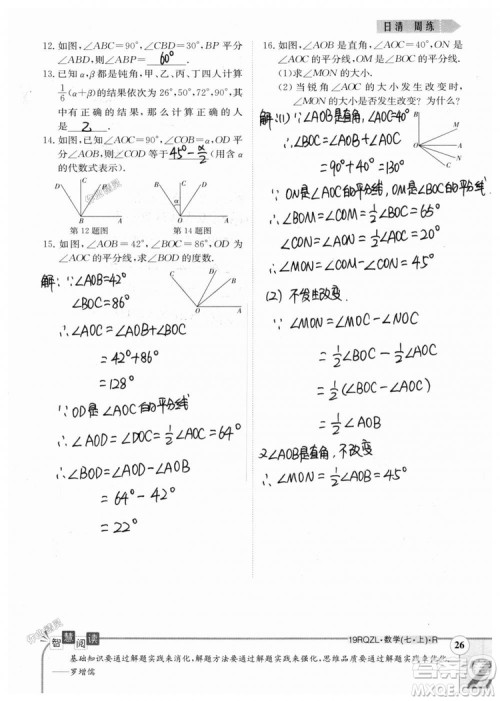 日清 周练
12. 如图，∠ABC=90°，∠CBD=30°，BP 平分
∠ABD，则∠ABP= 60° .
13. 已知 α，β 都是钝角，甲、乙、丙、丁四人计算
1/6(α+β)的结果依次为 26°，50°，72°，90°，其
中有正确的结果，那么计算正确的人
是 乙 .
14. 如图，∠AOB=90°，∠COB=α，OD 平分
∠AOB，则∠COD 等于 45°-α/2 (用含 α
的代数式表示).
C D P B A
C D B O A
第 12 题图 第 14 题图
15. 如图，∠AOB=42°，∠BOC=86°，OD 为
∠AOC 的平分线，求∠BOD 的度数.
C D B O A
解：∵∠AOB=42°
∠BOC=86°
∴∠AOC=∠AOB+∠BOC
=42°+86°
=128°
∵OD是∠AOC的平分线
∴∠AOD=∠DOC=64°
∴∠BOD=∠AOD-∠AOB
=64°-42°
=22°
16. 如图，∠AOB 是直角，∠AOC=40°，ON
是∠AOC 的平分线，OM 是∠BOC 的平分线.
(1)求∠MON 的大小；
(2)当锐角∠AOC 的大小发生改变时，
∠MON 的大小是否发生改变？为什么？
解：(1)∵∠AOB是直角，∠AOC=40°
∴∠BOC=∠AOB+∠AOC
=90°+40°=130°
B M A N C O
∵ON是∠AOC的平分线，OM是∠BOC的平分线
∴∠BOM=∠COM=1/2∠BOC=65°
∴∠AON=∠CON=1/2∠AOC=20°
∴∠MON=∠COM-∠CON=45°
(2) 不发生改变
∵∠MON=∠COM-∠CON
=1/2∠BOC-1/2∠AOC
=1/2(∠BOC-∠AOC)
=1/2∠AOB
又∠AOB是直角，不改变
∴∠MON=1/2∠AOB=45°
智慧阅读
19RQZL·数学(七·上)·R
26
基础知识要通过解题实践来消化，解题方法要通过解题实践来强化，思维品质要通过解题实践来优化。
——罗增儒